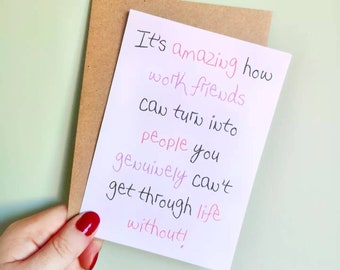 It's amazing how
work friends
can turn into
people you
genuinely can't
get through life
without!